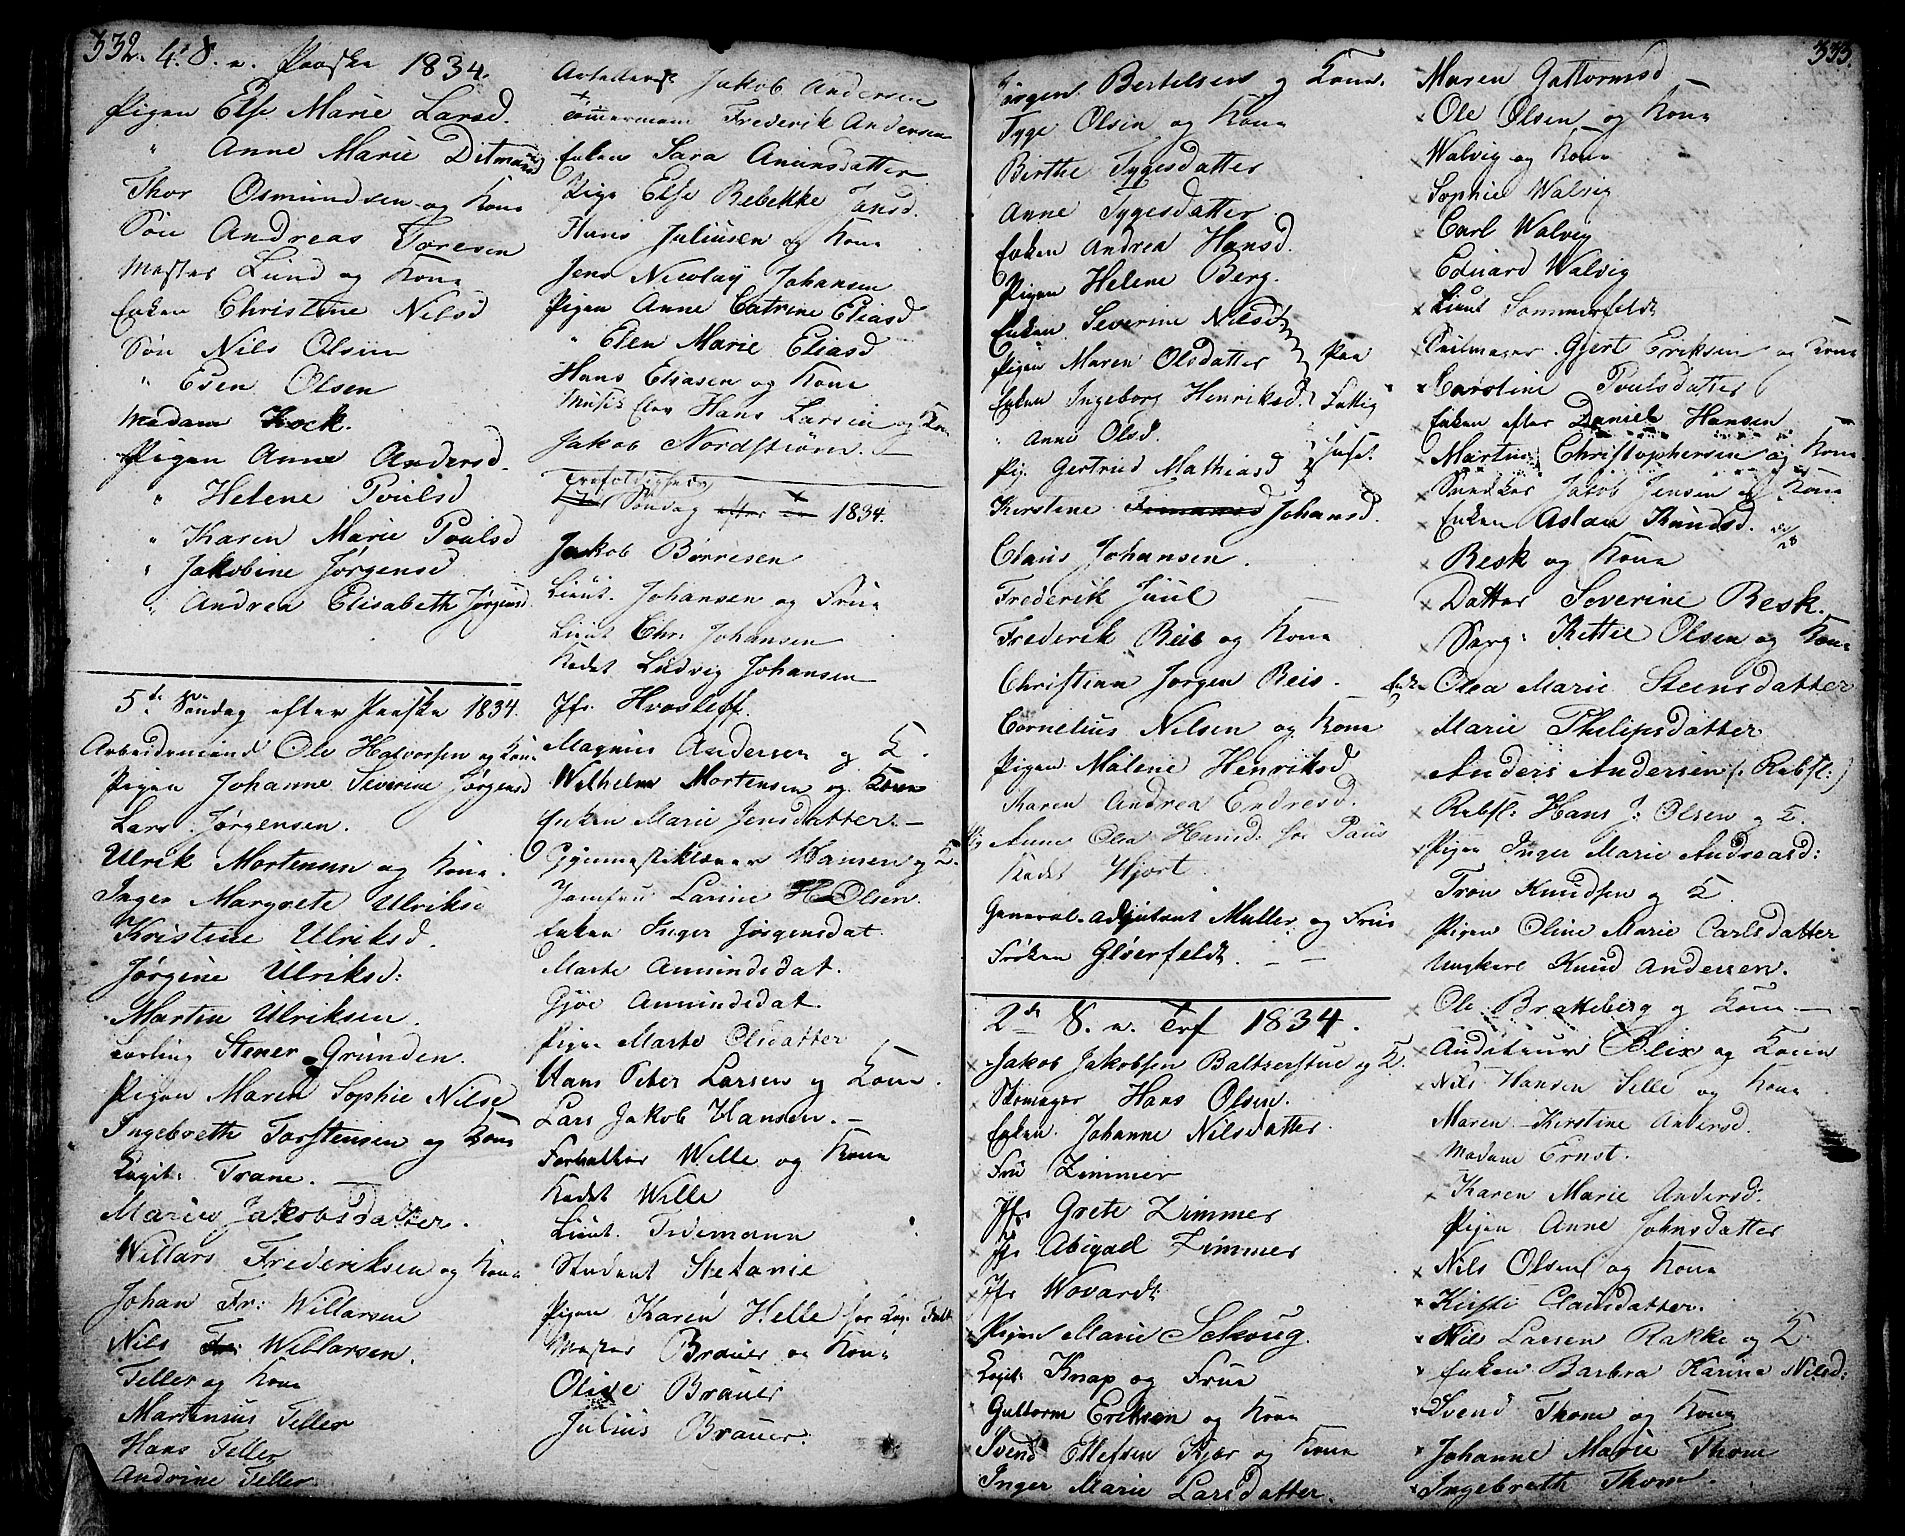 332.
4. S. e. Paaske 1834.
Pigen Else Marie Larsd.
" Anne Marie Ditmansd
Thor Osmundsen og Kone
Søn Andreas Toresen
Mester Lund og Kone
Enken Christine Nilsd
Søn Nils Olsen
" Even Olsen
Madam Kock.
Pigen Anne Andersd.
" Helene Poulsd
" Karen Marie Poulsd
" Jakobine Jørgensd
" Andrea Elisabeth Jørgensd
5te Søndag efter Paaske 1834.
Arbeidsmand Ole Halvorsen og Kone
Pigen Johanne Severine Jørgensd
Lars Jørgensen.
Ulrik Mortensen og Kone.
Inger Margrete Ulriksd
Kristine Ulriksd.
Jørgine Ulriksd:
Martin Ulriksen.
Lærling Stener Grunden.
Pigen Maren Sophie Nilsd
Ingebreth Torstensen og Kone
Capit: Trane.
Marie Jakobsdatter.
Willars Frederiksen og Kone
Johan Fr: Willarsen
Nils Fr: Willarsen.
Teller og Kone
Martensus Teller
Hans Teller
Andrine Teller
Jakob Andersen
Tømmermand Frederik Andersen
Enken Sara Amundsdatter
Pige Else Rebekke Jansd.
Hans Juliusen og Kone
Jens Nicolay Johansen
Pigen Anne Catrine Eliasd
" Elen Marie Eliasd
Hans Eliasen og Kone
Musis Elev Hans Larsen og Kone
Jakob Nordstrøm.
Trefoldigheds
Søndag efter 1834.
Jakob Børresen
Lieut. Johansen og Frue
Lieut Chr: Johansen
Kadet Ludvig Johansen
Jfr. Hvosleff.
Magnus Andersen og K.
Wilhelm Mortensen og Kone
Enken Marie Jensdatter.
Gymnastiklærer Hansen og K.
Jomfru Larine H Olsen.
Enken Inger Jørgensdat.
Marte Amundsdat.
Gjøe Amundsdat.
Pigen Marte Olsdatter
Hans Peter Larsen og Kone.
Lars Jakob Hansen.
Forvalter Wille og Kone
Kadet Wille
Lieut. Tidemann
Student Stefanie
Pigen Karen Helle for
Mester Brauer og Kone
Olive Brauer
Julius Brauer.
333.
Jørgen Bertelsen og Kone.
Tyge Olsen og Kone
Berthe Tygesdatter
Anne Tygesdatter
Enken Andrea Hansd.
Pigen Helene Berg.
Enken Severine Nilsd
Pigen Maren Olsdatter Paa
Enken Ingeborg Henriksd. Fattig
" Anne Olsd. huset.
Pig Gertrud Mathiasd
Kirstine Johansd.
Claus Johansen.
Frederik Juul
Frederik Reis og Kone
Christian Jørgen Reis.
Cornelius Nilsen og Kone
Pigen Malene Henriksd
Karen Andrea Endresd.
Anne Olea Hansd: for Paus
Kadet Hjort
General-adjutant Muller og Frue
Frøken Gloerfeldt.
2de S. e. Tref 1834.
Jakob Jakobsen Baltzerstue og K.
Skomager Hans Olsen.
Enken Johanne Nilsdatter
Fru Zimmer
Jfr Grete Zimmer
Jfr Abigael Zimmer
Jfr Wovardt
Pigen Marie Schoug.
Capt: Knap og Frue
Guttorm Eriksen og Kone
Svend Ellefsen Kjær og Kone
Inger Marie Larsdatter.
Maren Guttormsd
Ole Olsen og Kone
Walvig og Kone
Sophie Walvig
Carl Walvig
Eduard Walvig
Lieut Sommerfeldt
Seilmager Gjert Eriksen og Kone
Carstine Poulsdatter
Enken efter Daniel Hansen
Martin Christophersen og Kone
Snedker Jakob Jensen og Kone
Enken Aslau Knudsd.
Resk og Kone
Datter Severine Resk.
Serg: Kittil Olsen og Kone
Enke Olea Marie Steensdatter
Marie Philipsdatter
Anders Andersen (: Rebsl:)
Rebsl: Hans J: Olsen og K.
Pigen Inger Marie Andreasd:
Tron Knudsen og K
Pigen Oline Marie Carlsdatter
Ungkarl Knud Andersen.
Ole Brakkeberg og Kone
Auditeur Blix og Kone
Nils Hansen Selle og Kone
Maren Kirstine Andersd.
Madam Ernst.
Karen Marie Andersd:
Pigen Anne Johnsdatter
Nils Olsen og Kone
Kirsti Clausdatter.
Nils Larsen Rakke og K.
Enken Barbra Karine Nilsd:
Svend Thom og Kone
Johanne Marie Thom
Ingebreth Thom.